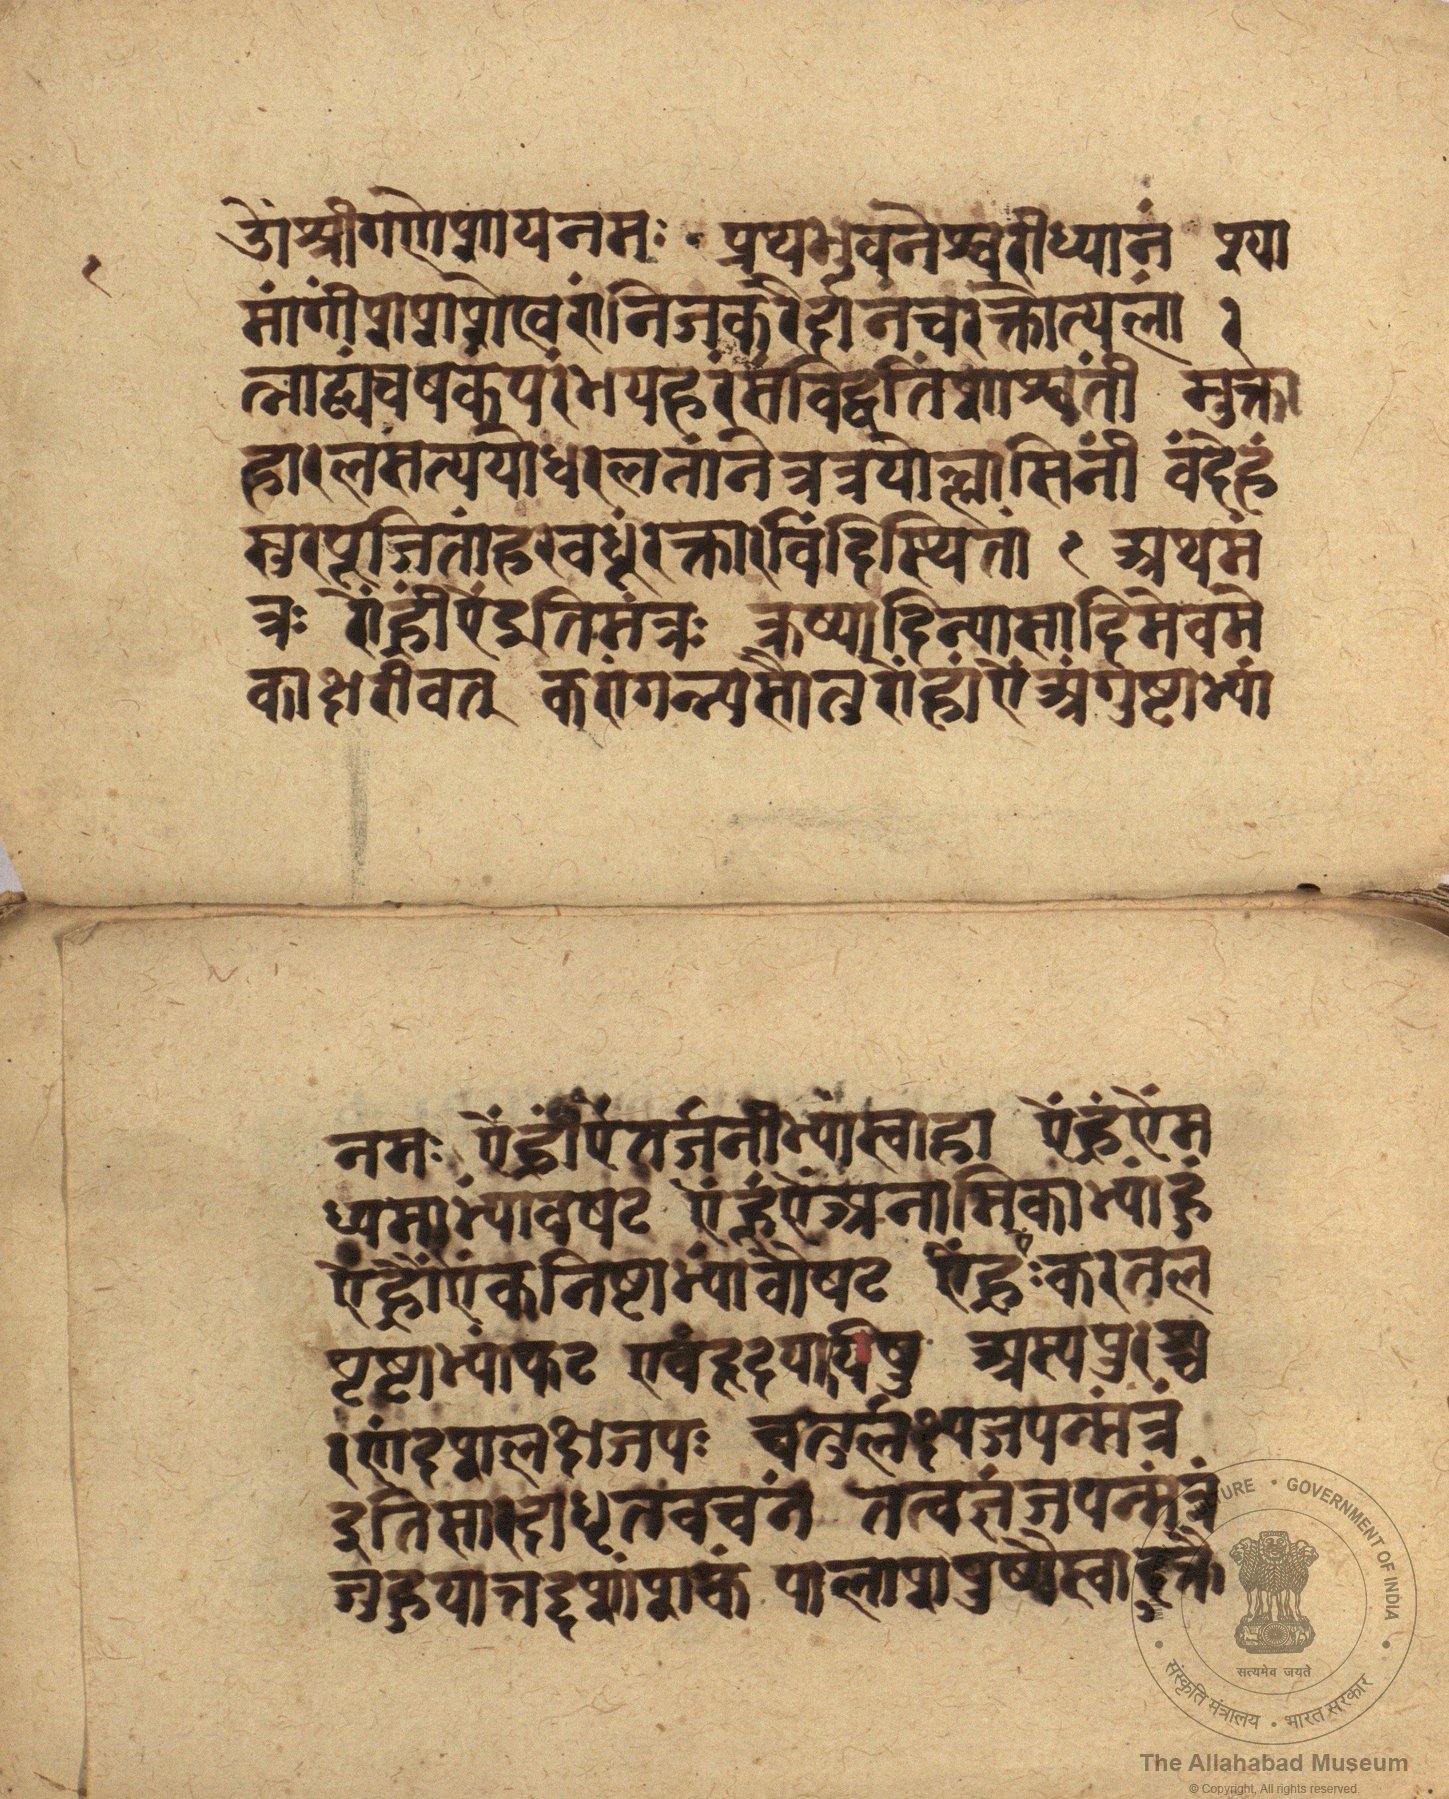 ॐश्रीगणेशायनमः प्रप्यभुवनेश्वरीध्यानं श्या
१
मांगीशशिशेखरांनिजकरैर्दानंचरक्तोत्पलां र
त्नाढ्यंचषकंपरंभयहरंसंविद्वतिंशाश्वतीं मुक्ता
हारलसत्पयोधरलतांनेत्रत्रयोल्लासिनीं वंदेहं
सुरपूजितांहरवधूंरक्तारविंदस्थितां १ अथमं
त्रः ऐंह्रींऐंइतिमंत्रः ऋष्यादिन्यासादिमेवमे
काक्षरीवत् करांगन्यसेत्तुऐंह्रांऐंअंगुष्टाभ्यां
नमः ऐंह्रींऐंतर्जनीभ्यांस्वाहा ऐंह्रूंऐंम
ध्यमाभ्यांवषट ऐंह्रैंऐंअनामिकाभ्यांहुं
ऐंह्रौंऐंकनिष्टाभ्यांवौषट ऐंह्रःकरतल
पृष्टाभ्यांफट एवंहृदयादिषु अस्यपुरश्च
रणंदशलक्षजपः चतुर्लक्ष्यजपन्मंत्रं
इतिसारदोधृतवचनं तत्वज्ञंजपन्मंत्रं
जुहुयात्तद्दशांशकं पालाशपुष्पैस्वादुक्तै
सत्यमेव जयते
CULTURE • GOVERNMENT OF INDIA
संस्कृति मंत्रालय • भारत सरकार
The Allahabad Museum
© Copyright, All rights reserved.